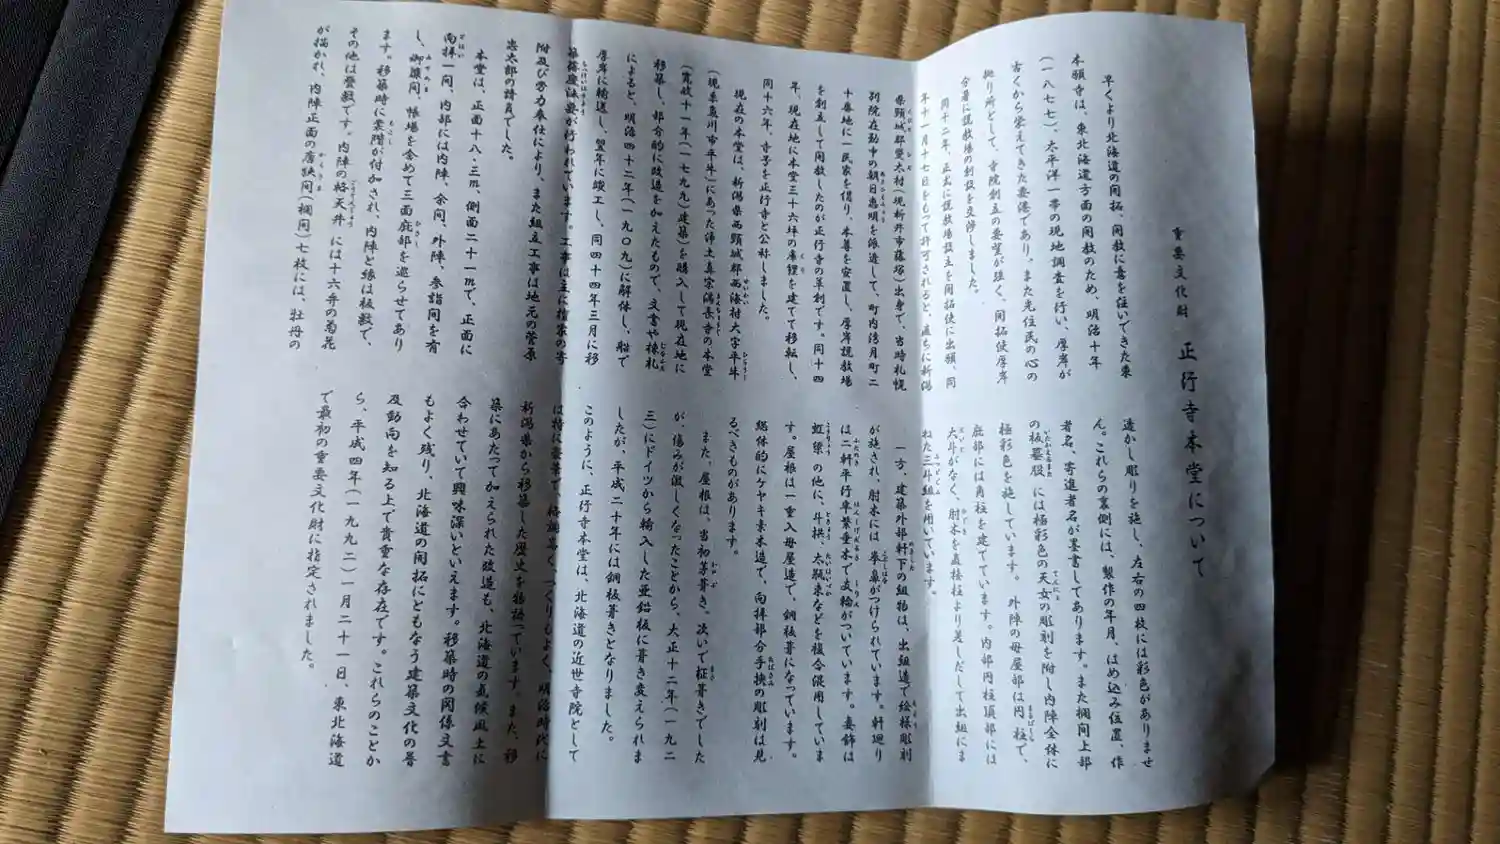 重要文化財
正行寺本堂について
早くより北海道の開拓、開教に意を注いできた東
本願寺は、東北海道方面の開教のため、明治十年
(一八七七)、太平洋一帯の現地調査を行い、厚岸が
古くから栄えてきた要港であり、また先住民の心の
拠り所として、寺院創立の要望が強く、開拓使厚岸
分署に説教場の創設を交渉しました。
同十二年、正式に説教場設立を開拓使に出願、同
年十一月十七日をもって許可されると、直ちに新潟
県頸城郡愛太村(現新井市藤塚)出身で、当時札幌
別院在勤中の朝日恵明を派遣して、町内湾月町二
十番地に一民家を借り、本尊を安置し、厚岸説教場
を創立して開教したのが正行寺の草創です。同十四
年、現在地に本堂三十六坪の庫裡を建てて移転し、
同十六年、寺号を正行寺と公称しました。
現在の本堂は、新潟県西頸城郡西海村大字平牛
(現糸魚川市平牛)にあった浄土真宗満長寺の本堂
(寛政十一年(一七九九)建築)を購入して現在地に
移築し、部分的に改造を加えたもので、文書や棟札
によると、明治四十二年(一九〇九)に解体し、船で
厚岸に輸送し、翌年に竣工し、同四十四年三月に移
築落慶法要が行われています。工事は主に檀家の寄
附及び労力奉仕により、また組立工事は地元の菅原
忠太郎の請負でした。
本堂は、正面十八・三m、側面二十一mで、正面に
向拝一間、内部には内陣、余間、外陣、参詣間を有
し、御簾間、帳場を含めて三面庇部を巡らせてあり
ます。移築時に裳階が付加され、内陣と縁は板敷で、
その他は畳敷です。内陣の格天井には十六弁の菊花
が描かれ、内陣正面の唐狭間(欄間)七枚には、牡丹の
透かし彫りを施し、左右の四枚には彩色がありませ
ん。これらの裏側には、製作の年月、はめ込み位置、作
者名、寄進者名が墨書してあります。また欄間上部
の板蟇股には極彩色の天女の彫刻を附し内陣全体に
極彩色を施しています。外陣の母屋部は円柱で、
庇部には角柱を建てています。内部円柱頂部には
大斗がなく、肘木を直接柱より差しだして出組にま
ねた三斗組を用いています。
一方、建築外部軒下の組物は、出組造で絵様彫刻
が施され、肘木には拳鼻がつけられています。軒廻り
は二軒平行半繁垂木で支輪がついています。妻飾は
虹梁の他に、斗栱、太瓶束などを複合混用していま
す。屋根は一重入母屋造で、銅板葺になっています。
総体的にケヤキ素木造で、向拝部分手挾の彫刻は見
るべきものがあります。
また、屋根は、当初茅葺き。次いで柾葺きでした
が、傷みが激しくなったことから、大正十二年(一九二
三)にドイツから輸入した亜鉛板に葺き変えられま
したが、平成二十年には銅板葺きとなりました。
このように、正行寺本堂は、北海道の近世寺院として
は特に豪華で、格調高く、つくりもよく、明治時代に
新潟県から移築した歴史を物語っています。また、移
築にあたって加えられた改造も、北海道の気候風土に
合わせていて興味深いといえます。移築時の関係文書
もよく残り、北海道の開拓にともなう建築文化の普
及動向を知る上で貴重な存在です。これらのことか
ら、平成四年(一九九二)一月二十一日、東北海道
で最初の重要文化財に指定されました。